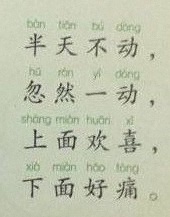 bàn tiān bú dòng
半天不动，
hū rán yí dòng
忽然一动，
shàng miàn huān xǐ
上面欢喜，
xià miàn hǎo tòng
下面好痛。